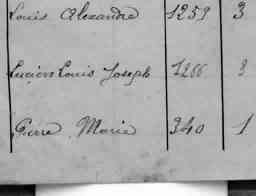 Louis Alexandre 1259 3
Lucien Louis Joseph 1266 3
Pierre Marie 340 1